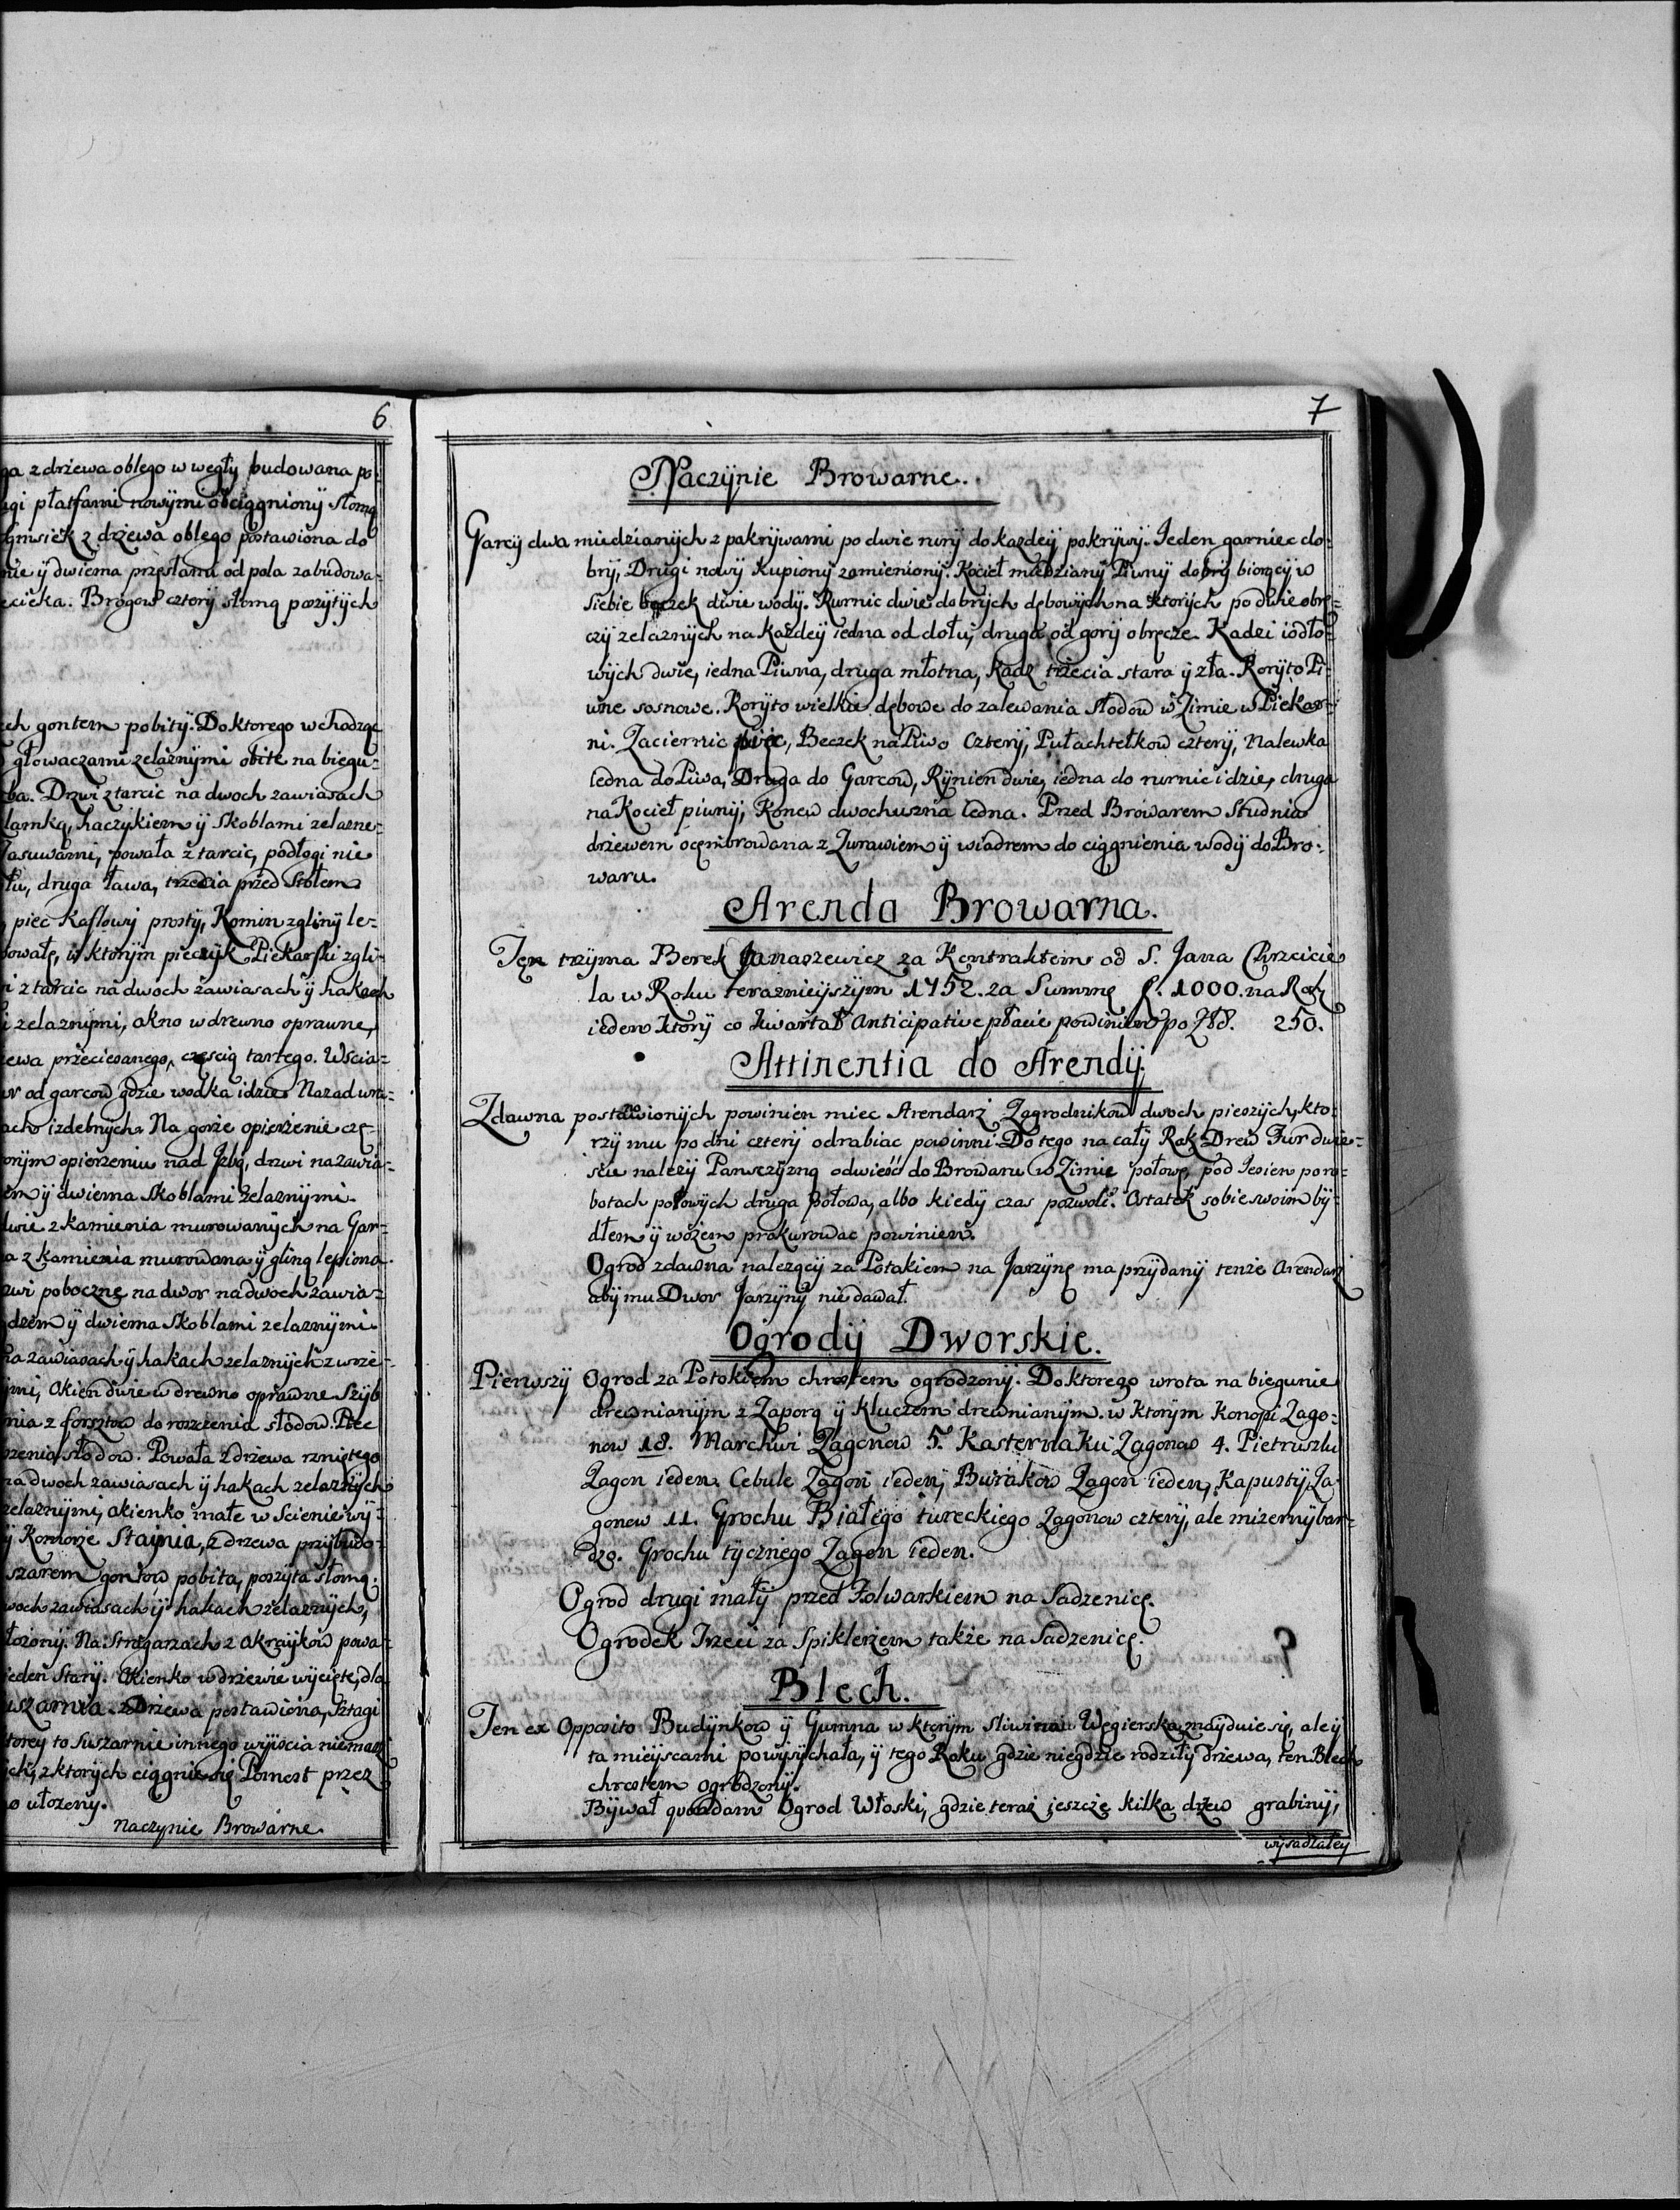 6
ga z drzewa oblego w węgły budowana po-
gi płatfami nowymi obciągniony słomą
gmsiek z drzewa oblego postawiona do
nie ÿ dwiema przęsłami od pola zabudowa-
ecieka. Brogow cztory słomą poszytych
ch gontem pobitÿ. Do ktorego wchodząc
głowaczami zelaznÿmi obite na biegu-
ba. Drzwi z tarcic na dwoch zawiasach
lamką, haczykiem ÿ Skoblami zelazne-
Zasuwami, powała z tarcic, podłogi nie
łu, druga ława, trzecia przed Stołem
piec kaflowy prosty, Komin z gliny le-
powałę, w ktorym piecyk Piekarski z gli-
i z tarcic na dwoch zawiasach ÿ hakach
i zelaznymi, okno w drewno oprawne,
ewa przeciesanego, częscią tartego. W scia-
or od garcow gdzie wodka idzie. Nazad wra-
ach izdebnych. Na gorze opierzenie czę-
orym opierzeniu nad Jzbą, drzwi na zawia-
em ÿ dwiema Skoblami zelaznymi.
dwie z kamienia murowanych na Gar-
a z kamienia murowana ÿ gliną lepiona.
zwi poboczne na dwor na dwoch zawia-
dzem ÿ dwiema Skoblami zelaznymi.
na zawiasach ÿ hakach zelaznych z wrze-
ymi, Okien dwie w drewno oprawne Szyb
nia z forsztow do roszczenia słodow. Piec
szenia słodow. Powała z drzewa rzniętego
na dwoch zawiasach ÿ hakach zelaznÿch
zelaznymi, okienko małe w Scienie wÿ-
ÿ Komorze Staynia, z drzewa przybudo-
szarem gontow pobita, poszyta słomą.
woch zawiasach ÿ hakach zelaznych,
łozony. Na Stragarzach z okraykow powa-
ieden Stary. Okienko w drzewie wycięte, dla
uszarnia z Drzewa postawiona, Sztagi
torey to suszarnie innego wyiscia niemasz
ich, z ktorych ciągnie się Pomost przez
o ułozeny.
Naczynie Browarne.
7
Naczÿnie Browarne.
Garcÿ dwa miedzianÿch z pokrÿwami po dwie rurÿ do kazdeÿ pokrÿwÿ. Ieden garniec do-
brÿ, Drugi nowÿ kupionÿ zamienionÿ. Kocieł miedzianÿ Piwnÿ dobrÿ biorącÿ w
siebie beczek dwie wodÿ. Rurnic dwie dobrÿch dębowÿch na ktorÿch po dwie obrę-
czÿ zelaznÿch na kazdeÿ iedna od dołu, druga od gorÿ obręcze. Kadzi iodło-
wÿch dwie, iedna Piwna, druga młotna, Kadz trzecia stara ÿ zła. Korÿto Pi-
wne sosnowe. Korÿto wielkie dębowe do zalewania Słodow w Zimie w Piekar-
ni. Zaciernic dwie, Beczek na Piwo Czterÿ, Pułachtełkow czterÿ, Nalewka
iedna do Piwa, Druga do Garcow, Rÿnien dwie, iedna do rurnic idzie, druga
na Kocieł piwnÿ, Konew dwochuszna iedna. Przed Browarem Studnia
drzewem ocembrowana z Zurawiem ÿ wiadrem do ciągnienia wodÿ do Bro-
waru.
Arenda Browarna.
Ten trzÿma Berek Janaszewicz za Kontraktem od S. Jana Chrzcicie
la w Roku teraznieÿszÿm 1752. za Summę f. 1000. na Rok
ieden ktorÿ co kwartał Anticipative płacic powinien po Zł. 250.
Attinentia do Arendÿ.
Zdawna postawionÿch powinien miec Arendarz Zagrodnikow dwoch pieszÿch, kto-
rzÿ mu po dni czterÿ odrabiac powinni. Do tego na całÿ Rok Drew Fur dwie-
scie nalezÿ Panszczÿzną odwieść do Browaru w Zimie połowę, pod Iesien po ro-
botach polowÿch druga połowa, albo kiedÿ czas pozwoli. Ostatek sobie swoim bÿ-
dłem ÿ wozem prokurowac powinien.
Ogrod zdawna nalezącÿ za Potokiem na Jarzÿnę ma przÿdanÿ tenze Arendarz
abÿ mu Dwor Jarzÿnÿ nie dawał.
Ogrodÿ Dworskie.
Pierwszÿ Ogrod za Potokiem chrostem ogrodzonÿ. Do ktorego wrota na biegunie
drewnianÿm z Zaporą ÿ kluczem drewnianÿm. w ktorÿm Konopi Zago-
now 18. Marchwi Zagonow 5. Kasternaku Zagonow 4. Pietruszki
Zagon ieden. Cebule Zagon ieden, Burakow Zagon ieden, Kapustÿ Za-
gonow 11. Grochu Białego tureckiego Zagonow czterÿ, ale mizernÿ bar-
dzo. Grochu tÿcznego Zagon ieden.
Ogrod drugi małÿ przed Folwarkiem na Sadzenice.
Ogrodek Trzeci za Spiklerzem także na Sadzenice.
Blech.
Ten ex Opposito Budÿnkow ÿ Gumna w ktorÿm Sliwina Węgierska znaÿduie się, ale ÿ
ta mieÿscami powÿsÿchała, ÿ tego Roku gdzie niegdzie rodziłÿ drzewa, ten Blech
chrostem ogrodzonÿ.
Bÿwał quondam Ogrod Włoski, gdzie teraz jeszcze kilka drzew grabinÿ,
wÿsadzałeÿ